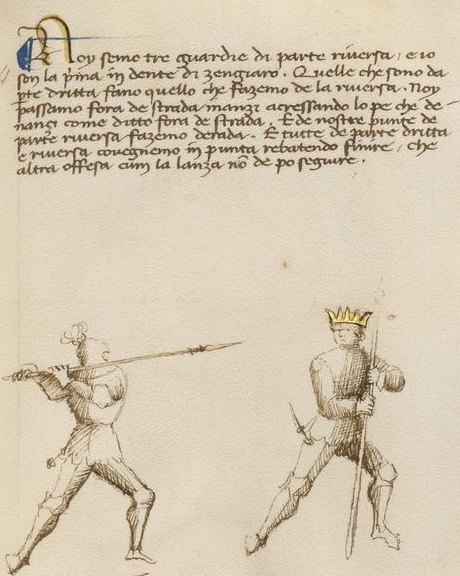 Noy semo tre guardie di parte riversa, e io
son la p'ina in dente di zengiaro. Quelle che sono da
p'te dritta fano quello che fazemo de la riversa. Noy
passamo fora de strada inanzi acressando lo pe che de-
nançi come ditto fora de strada. E de nostre punte de
parte riversa fazemo derada. E tutte de parte dritta
e riversa covegnemo in punta rebatendo finire, che
altra offesa cum la lanza nō de po seguire.